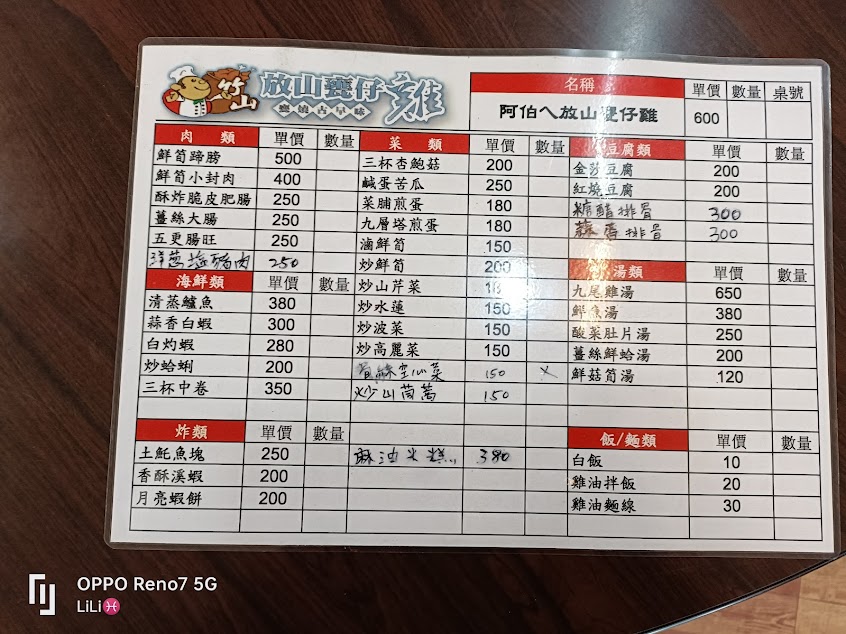 竹山 放山甕仔雞
甕燒古早味
名稱 單價 數量 桌號
阿伯ㄟ放山甕仔雞 600
肉類 單價 數量
鮮筍蹄膀 500
鮮筍小封肉 400
酥炸脆皮肥腸 250
薑絲大腸 250
五更腸旺 250
洋蔥塩豬肉 250
海鮮類 單價 數量
清蒸鱸魚 380
蒜香白蝦 300
白灼蝦 280
炒蛤蜊 200
三杯中卷 350
炸類 單價 數量
土魠魚塊 250
香酥溪蝦 200
月亮蝦餅 200
菜類 單價 數量
三杯杏鮑菇 200
鹹蛋苦瓜 250
菜脯煎蛋 180
九層塔煎蛋 180
滷鮮筍 150
炒鮮筍 200
炒山芹菜
炒水蓮 150
炒波菜 150
炒高麗菜 150
空心菜 150 X
炒山茼蒿 150
麻油米糕 380
豆腐類 單價 數量
金莎豆腐 200
紅燒豆腐 200
糖醋排骨 300
蒜香排骨 300
湯類 單價 數量
九尾雞湯 650
鮮魚湯 380
酸菜肚片湯 250
薑絲鮮蛤湯 200
鮮菇筍湯 120
飯/麵類 單價 數量
白飯 10
雞油拌飯 20
雞油麵線 30
OPPO Reno7 5G
LiLi♓